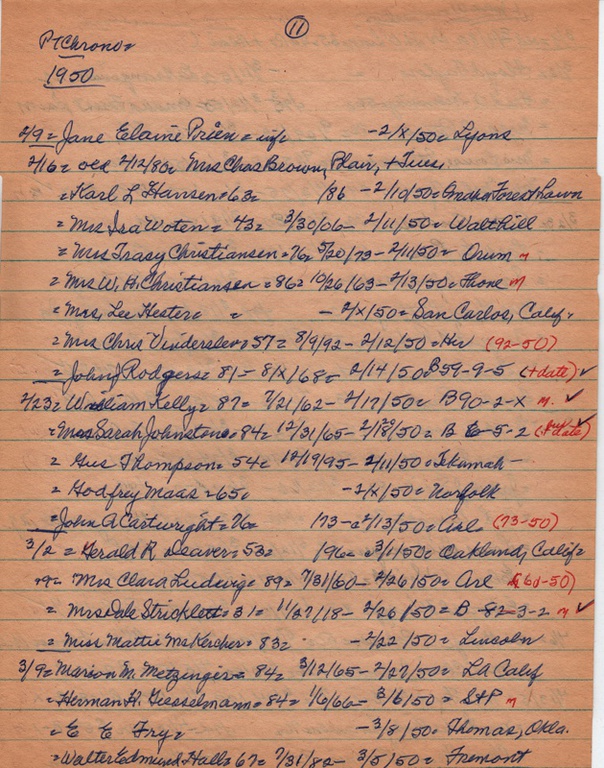 11
Pt Chrono=
1950
2/9= Jane Elaine Prien = inf= -2/x/50= Lyons
2/16= ced 2/12/80= Mrs Chas Brown, Blair, + Tues,
= Karl L Hansen= 63= /86 -2/10/50= Omaha Forest Lawn
= Mrs Ira Woten = 43= 3/30/06- 2/11/50= Walthill
= Mrs Tracy Christiansen=76= 5/20/73-2/11/50= Orum m
= Mrs W. H. Christiansen = 86= 10/26/63-2/13/50= Fhone m
= Mrs, Lee Hester= = - 2/x/50= San Carlos, Calif=
= Mrs Chris Vinderslev= 57= 8/9/92-2/12/50= Her (92-50)
= John J Rodgers= 81- 8/x/68= 2/14/50= B59-9-5 (+date) ✓
2/23= William Kelly= 87= 7/21/62-2/17/50= B90-2-x m. ✓
= Mrs Sarah Johnston= 84= 12/31/65- 2/18/50= B 6-5-2 (+ date) ✓
= Gus Thompson= 54= 12/19/95-2/11/50= Tekamah -
= Godfrey Maas = 65= -2/x/50= Norfolk
= John A Cartwright= 76= /73-a2/13/50= Arl= (73-50)
3/2 = Gerald R Deaver= 53= /96= a3/1/50= Oakland, Calif=
= Mrs Clara Ludwig= 89= 7/31/60-2/26/50= Arl (60-50)
= Mrs Dale Stricklett= 31= 11/27/18-2/26/50= B 82=3-2 m ✓
= Miss Mattie McKercher= 83= -2/22/50= Lincoln
3/9= Marion M. Metzinger= 84= 3/12/65-2/27/50= LA Calif
= Herman H. Giesselmann= 84= 1/6/66- 3/6/50= StP m
= E E Fry= -3/8/50= Thomas, Okla.
= Walter Edmund Hall= 67= 7/31/82- 3/5/50= Fremont